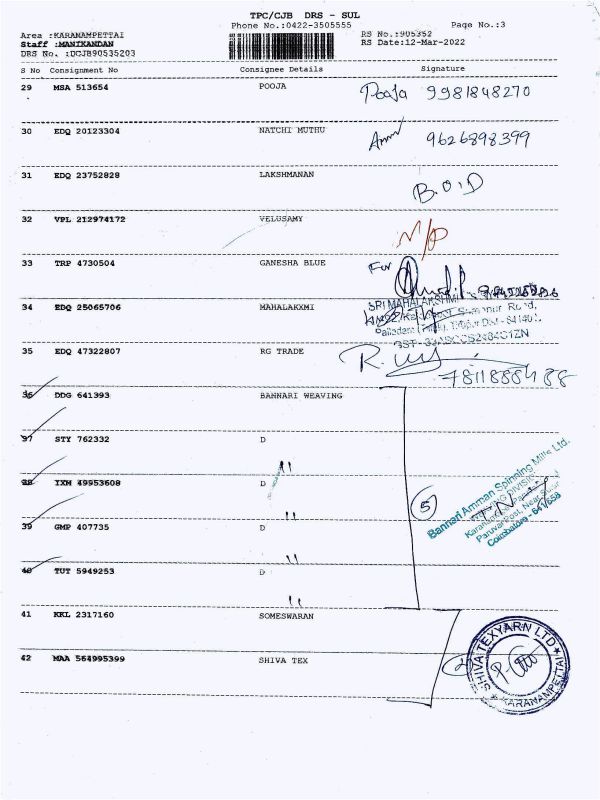 TPC/CJB DRS - SUL
Phone No.:0422-3505555 Page No.:3
Area :KARANAMPETTAI RS No.:905352
Staff :MANIKANDAN RS Date:12-Mar-2022
DRS No. :DCJB90535203
S No Consignment No Consignee Details Signature
29 MSA 513654 POOJA Pooja 9981848270
30 EDQ 20123304 NATCHI MUTHU 9626898399
31 EDQ 23752828 LAKSHMANAN B.O.D
32 VPL 212974172 VELUSAMY
33 TRP 4730504 GANESHA BLUE For
34 EDQ 25065706 MAHALAKXMI
SRI MAHALAKSHMI
35 EDQ 47322807 RG TRADE
36 DDG 641393 BANNARI WEAVING
37 STY 762332 D
"
38 IXM 49953608 D
"
39 GMP 407735 D
"
40 TUT 5949253 D
"
5
Bannari Amman Spinning Mills Ltd.
Coimbatore - 641658
41 KKL 2317160 SOMESWARAN
42 MAA 564995399 SHIVA TEX
2
SHIVA TEXYARN LTD
KARANAMPETTAI